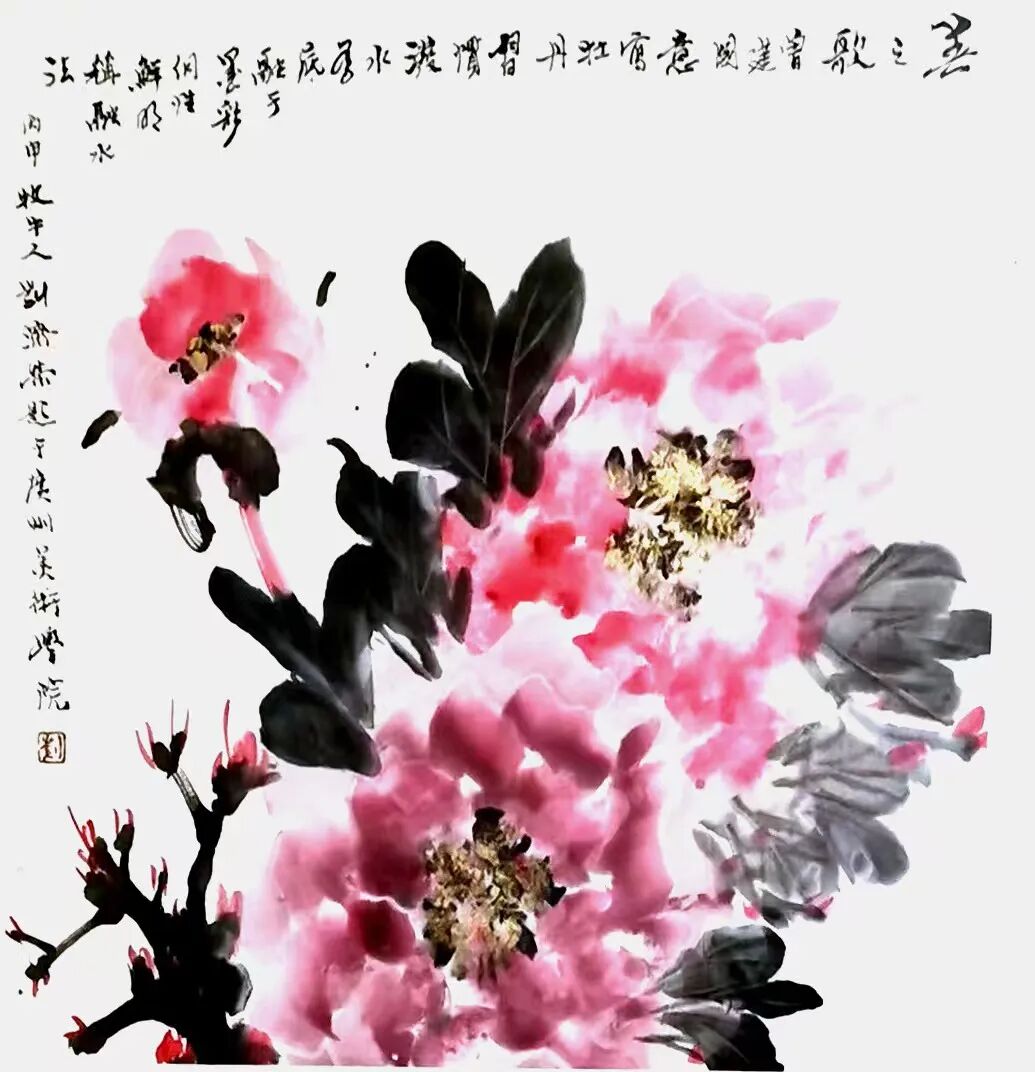 春之歌曾建國意寫牡丹習慣潑水為底融于墨彩個性鮮明稱融水法
丙申牧牛人劉濟榮題于廣州美術學院
劉